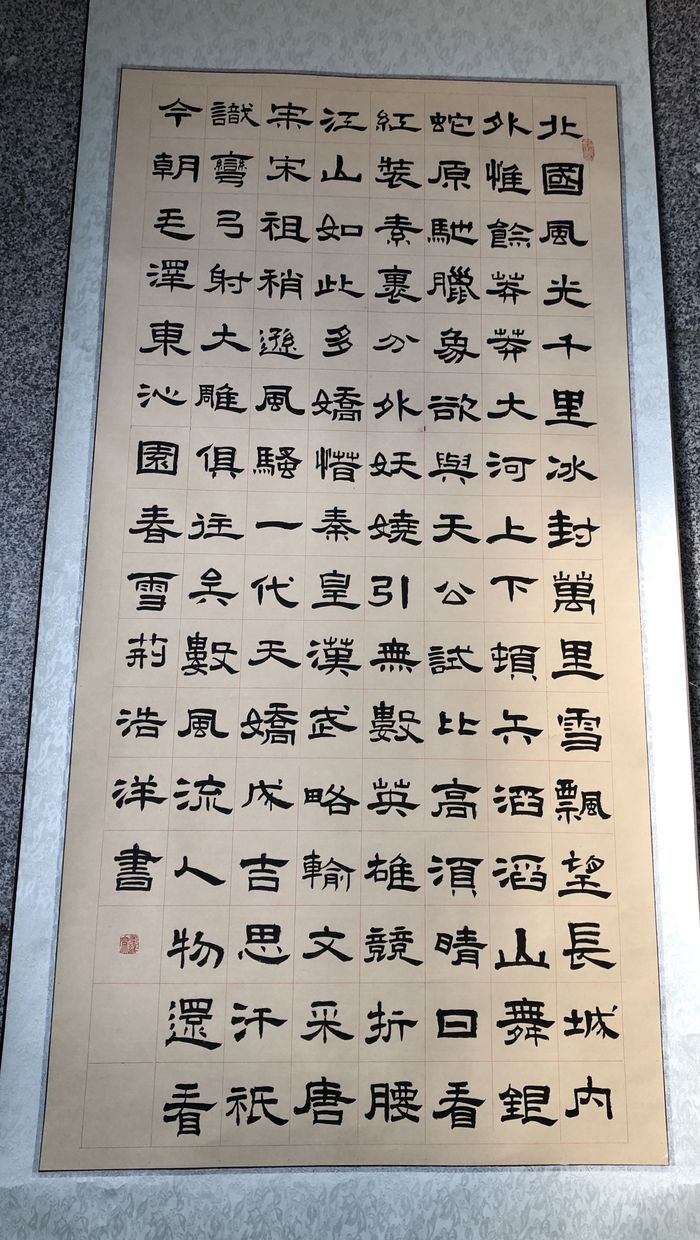 北國風光千里冰封萬里雪飄望長城内
外惟餘莽莽大河上下頓失滔滔山舞銀
蛇原馳臘象欲與天公試比高須晴日看
紅裝素裹分外妖嬈引無數英雄競折腰
江山如此多嬌惜秦皇漢武略輸文采唐
宋宋祖稍遜風騷一代天嬌成吉思汗祇
識彎弓射大雕俱往矣數風流人物還看
今朝毛澤東沁園春雪荊浩洋書